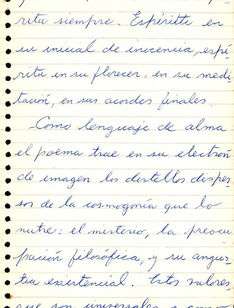 rita siempre. Espíritu en
su inicial de inocencia, espí-
ritu en su florecer, en su medi-
tación, en sus acordes finales.
Como lenguaje de alma
el poema trae en su electrón
de imagen los destellos disper-
sos de la cosmogonía que lo
nutre: el misterio, la preocu-
pación filosófica, y su angus-
tia existencial. Estos valores,
que son universales a